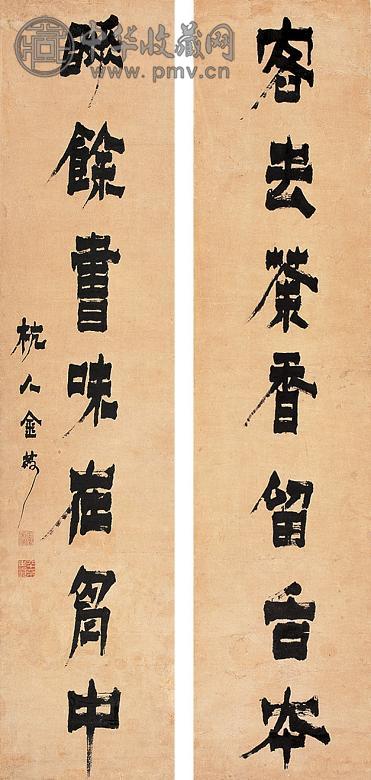 中华收藏网
www.pmv.cn
客去茶香留舌本
睡餘書味在胷中
杭人金農